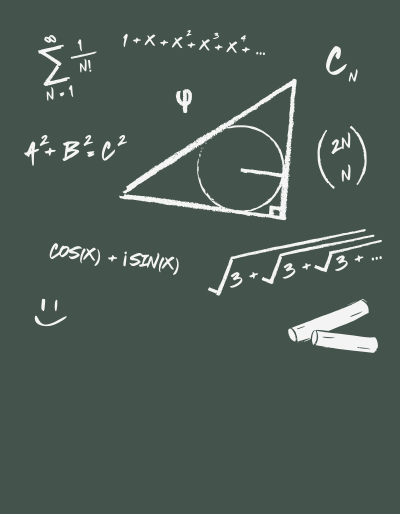 ∞
∑ 1/N!
N=1
1 + X + X² + X³ + X⁴ + ...
C_N
φ
A² + B² = C²
(2N
N)
COS(X) + i SIN(X)
√3 + √3 + √3 + ...